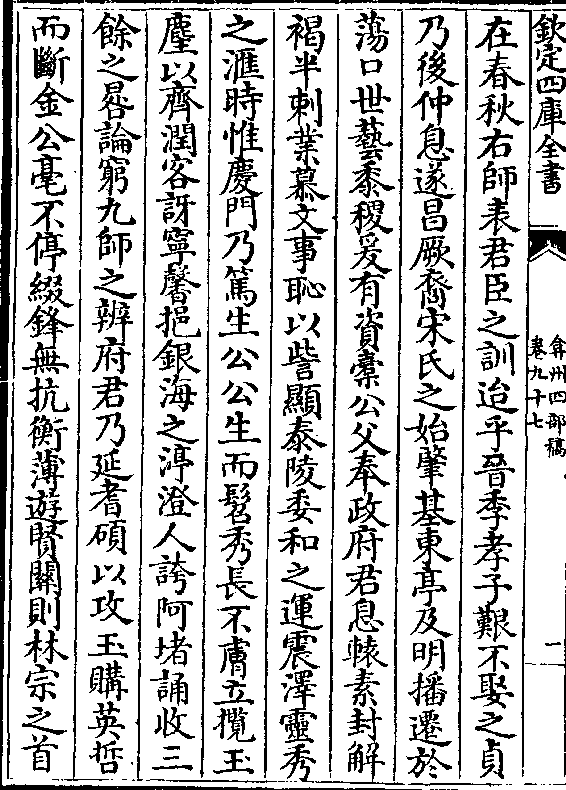 欽定四庫全書
弇州四部稿
卷九十七
一
在春秋右師表君臣之訓迨乎晉季孝子艱不娶之貞
乃後仲息遂昌厥裔宋氏之始肇基東亭及明播遷於
蕩口世藝黍稷爰有資橐公父奉政府君息轅素封解
褐半刺業慕文事恥以訾顯泰陵委和之運震澤靈秀
之滙時惟慶門乃篤生公公生而髫秀長不膚立攬玉
麈以齊潤客訝寧馨挹銀海之渟澄人誇阿堵誦收三
餘之晷論窮九師之辨府君乃延耆碩以攻玉購英哲
而斷金公毫不停綴鋒無抗衡薄遊賢關則林宗之首